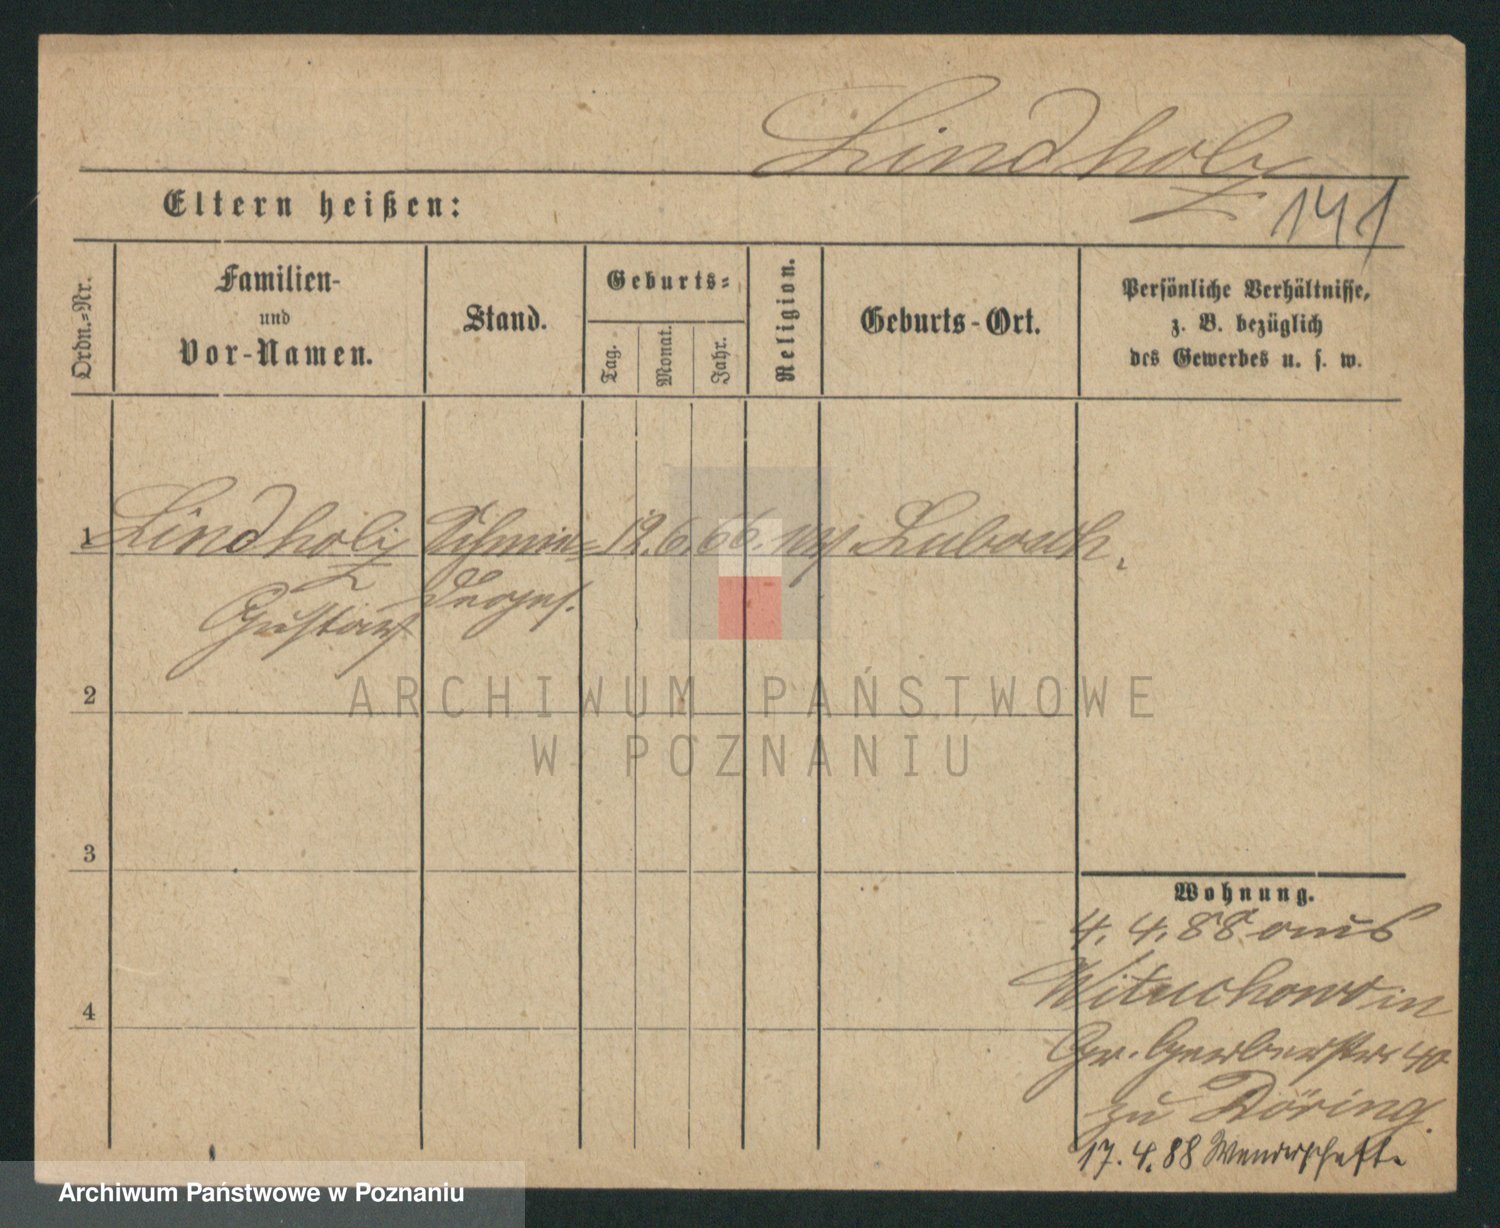 Lindholz
Eltern heißen:
141
Ordn.-Nr.
Familien-
und
Vor-Namen.
Stand.
Geburts-
Tag.
Monat.
Jahr.
Religion.
Geburts-Ort.
Persönliche Verhältnisse,
z. B. bezüglich
des Gewerbes u. s. w.
1 Lindholz Schmie- 19. 6. 66. ev. Lubosch.
Gustav deges.
2
ARCHIWUM PAŃSTWOWE
W POZNANIU
3
Wohnung.
4. 4. 88 aus
Wituchowo in
4
Gr. Gerberstr 40
zu Döring.
17. 4. 88 Wanderschaft.
Archiwum Państwowe w Poznaniu